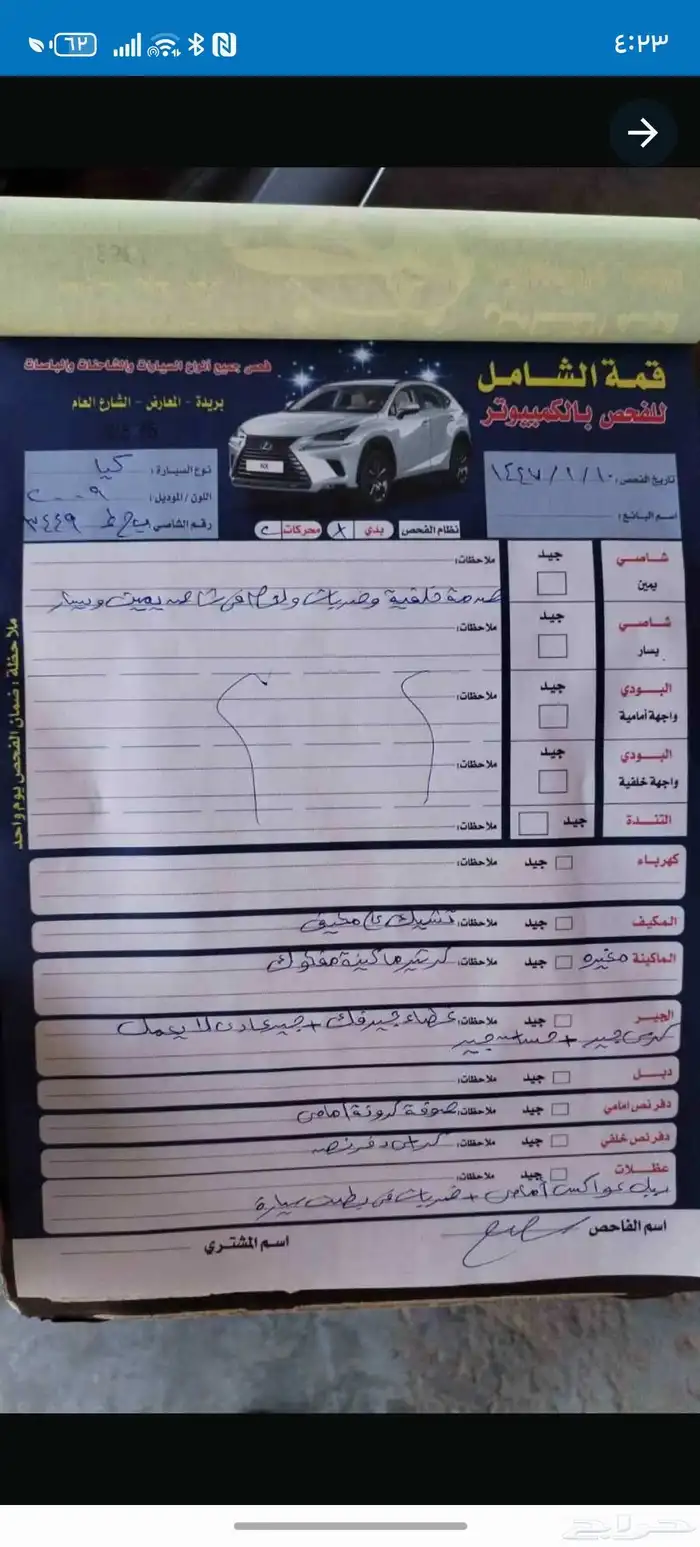 ٦٢
٤:٢٣
قمة الشامل
للفحص بالكمبيوتر
فحص جميع أنواع السيارات والشاحنات والباصات
بريدة - المعارض - الشارع العام
تاريخ الفحص: ١٤٤٧/١/١٠
اسم البائع:
نوع السيارة: كيا
اللون / الموديل: ٢٠٠٩
رقم الشاصي ٣٤٤٩
نظام الفحص بدي X محركات
شاصي يمين جيد ملاحظات:
صدمة خلفية وضربات ولحام في شاصي يمين ويسار
شاصي يسار جيد ملاحظات:
البودي واجهة أمامية جيد ملاحظات:
البودي واجهة خلفية جيد ملاحظات:
التندة جيد ملاحظات:
ملاحظة : ضمان الفحص يوم واحد
كهرباء جيد ملاحظات:
المكيف جيد ملاحظات: تشييك ع مكيف
الماكينة مغيره جيد ملاحظات: كرتير ماكينة مفكوك
الجير جيد ملاحظات: غطاء جير فك + جير عادي لا يعمل
كرسي جير + جير
دبل جيد ملاحظات:
دفرنص امامي جيد ملاحظات: صوفة كرونة امامي
دفرنص خلفي جيد ملاحظات: دفرنص
عضلات جيد ملاحظات:
ربل عواكس أمامي + ضربات في بطن سيارة
اسم الفاحص
اسم المشتري
حراج